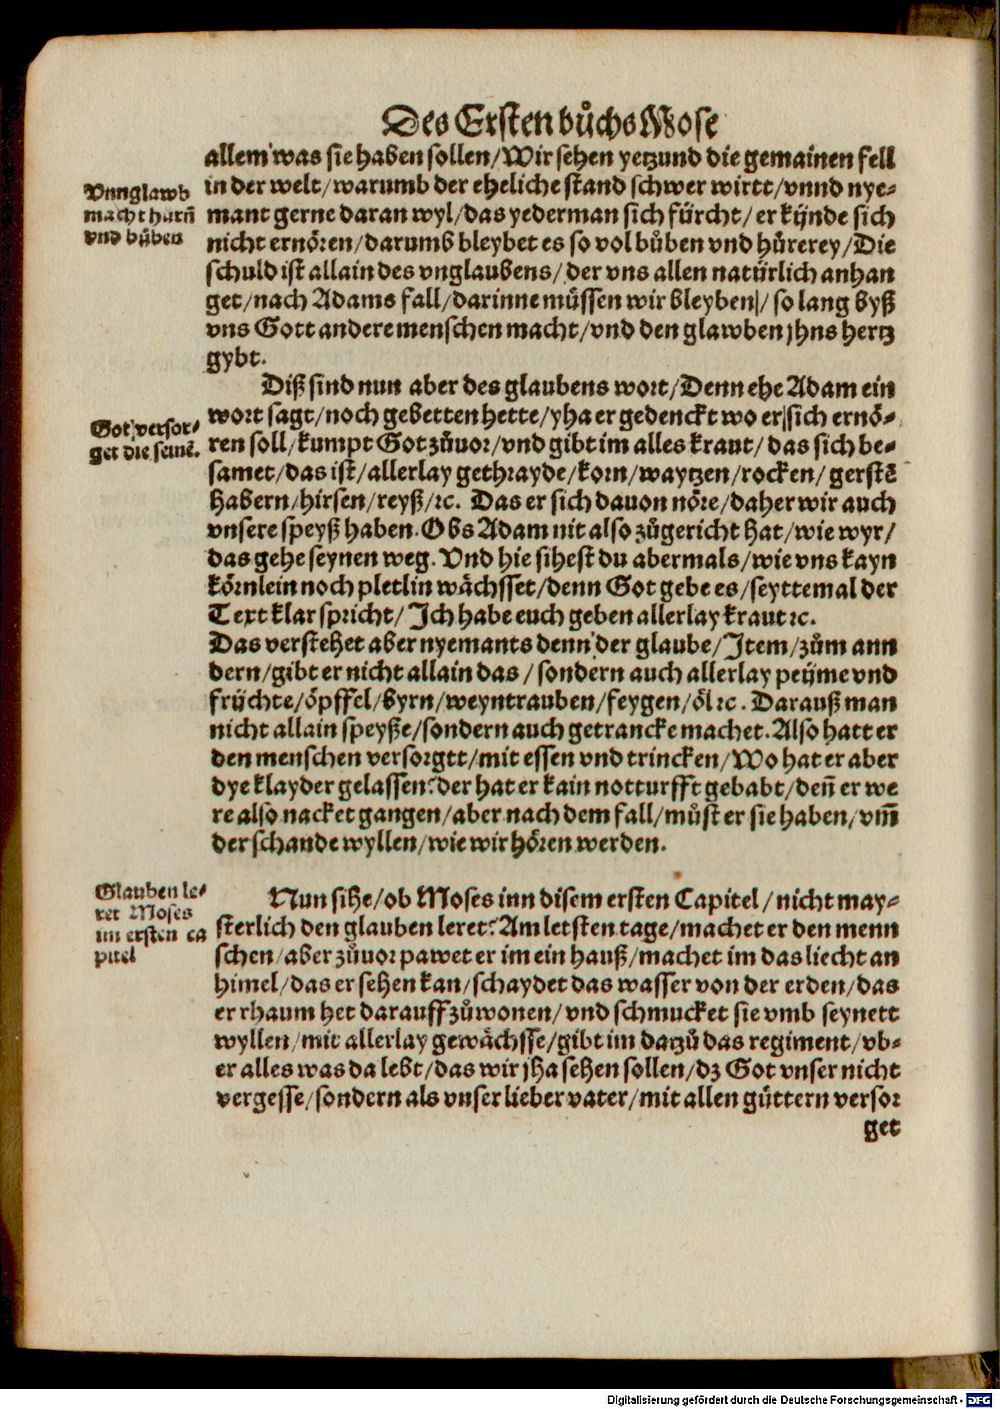 Des Ersten bůchs Mose
allem was sie haben sollen/Wir sehen yetzund die gemainen fell
Vnnglawb
macht hurn̄
vnd bůben
in der welt/warumb der eheliche stand schwer wirtt/vnnd nye⸗
mant gerne daran wyl/das yederman sich fürcht/er kÿnde sich
nicht ernören/darumb bleybet es so vol bůben vnd hůrerey/Die
schuld ist allain des vnglaubens/der vns allen natürlich anhan
get/nach Adams fall/darinne müssen wir bleyben/so lang byß
vns Gott andere menschen macht/vnd den glawben jhns hertz
gybt.
Diß sind nun aber des glaubens wort/Denn ehe Adam ein
wort sagt/noch gebetten hette/yha er gedenckt wo er sich ernö⸗
Got versor⸗
get die seinē.
ren soll/kumpt Got zůuor/vnd gibt im alles kraut/das sich be⸗
samet/das ist/allerlay gethrayde/korn/waytzen/rocken/gerstē
habern/hirsen/reyß/ꝛc. Das er sich dauon nöre/daher wir auch
vnsere speyß haben. Obs Adam nit also zůgericht hat/wie wyr/
das gehe seynen weg. Vnd hie sihest du abermals/wie vns kayn
körnlein noch pletlin wächsset/denn Got gebe es/seyttemal der
Text klar spricht/Ich habe euch geben allerlay kraut ꝛc.
Das verstehet aber nyemants denn der glaube/Item/zům ann
dern/gibt er nicht allain das/sondern auch allerlay peÿme vnd
frÿchte/öpffel/byrn/weyntrauben/feygen/öl ꝛc. Darauß man
nicht allain speyße/sondern auch getrancke machet. Also hatt er
den menschen versorgtt/mit essen vnd trincken/Wo hat er aber
dye klayder gelassen? der hat er kain notturfft gebabt/den̄ er we
re also nacket gangen/aber nach dem fall/můst er sie haben/vm̄
der schande wyllen/wie wir hören werden.
Glauben le⸗
ret Moses
im ersten ca
pitel
Nun sihe/ob Moses inn disem ersten Capitel/nicht may⸗
sterlich den glauben leret? Am letsten tage/machet er den menn
schen/aber zůuor pawet er im ein hauß/machet im das liecht an
himel/das er sehen kan/schaydet das wasser von der erden/das
er rhaum het darauff zůwonen/vnd schmucket sie vmb seynett
wyllen/mit allerlay gewächsse/gibt im darzů das regiment/vb⸗
er alles was da lebt/das wir jha sehen sollen/dz Got vnser nicht
vergesse/sondern als vnser lieber vater/mit allen güttern versor
get
Digitalisierung gefördert durch die Deutsche Forschungsgemeinschaft - DFG